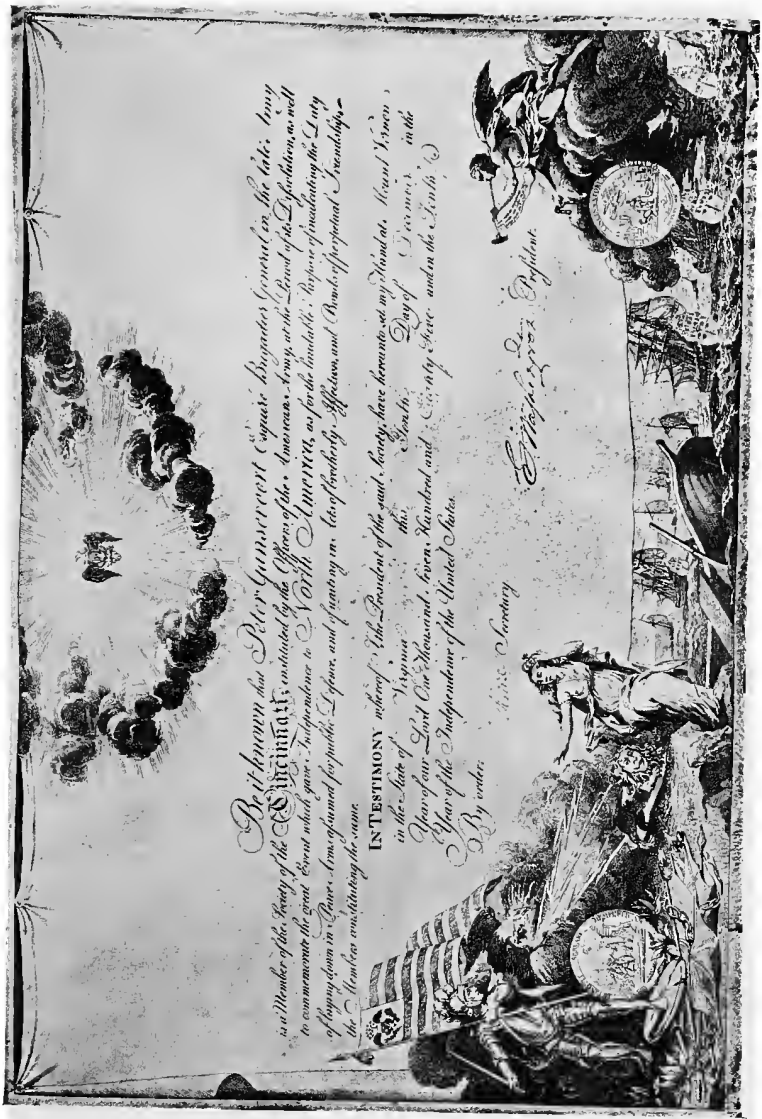 Be it known that Peter Gansevoort Esquire Brigadier General in the late Army
is a Member of the Society of the Cincinnati; instituted by the Officers of the American Army, at the Period of its Dissolution, as well
to commemorate the great Event which gave Independence to North America, as for the laudable Purpose of inculcating the Duty
of laying down in Peace Arms assumed for public Defence, and of uniting in Acts of brotherly Affection, and Bonds of perpetual Friendship,
the Members constituting the same.
IN TESTIMONY whereof I, the President of the said Society, have hereunto set my Hand at Mount Vernon
in the State of Virginia this Tenth Day of in the
Year of our Lord One Thousand Seven Hundred and Eighty Five and in the Tenth
Year of the Independence of the United States.
By order.
Secretary
G Washington President.